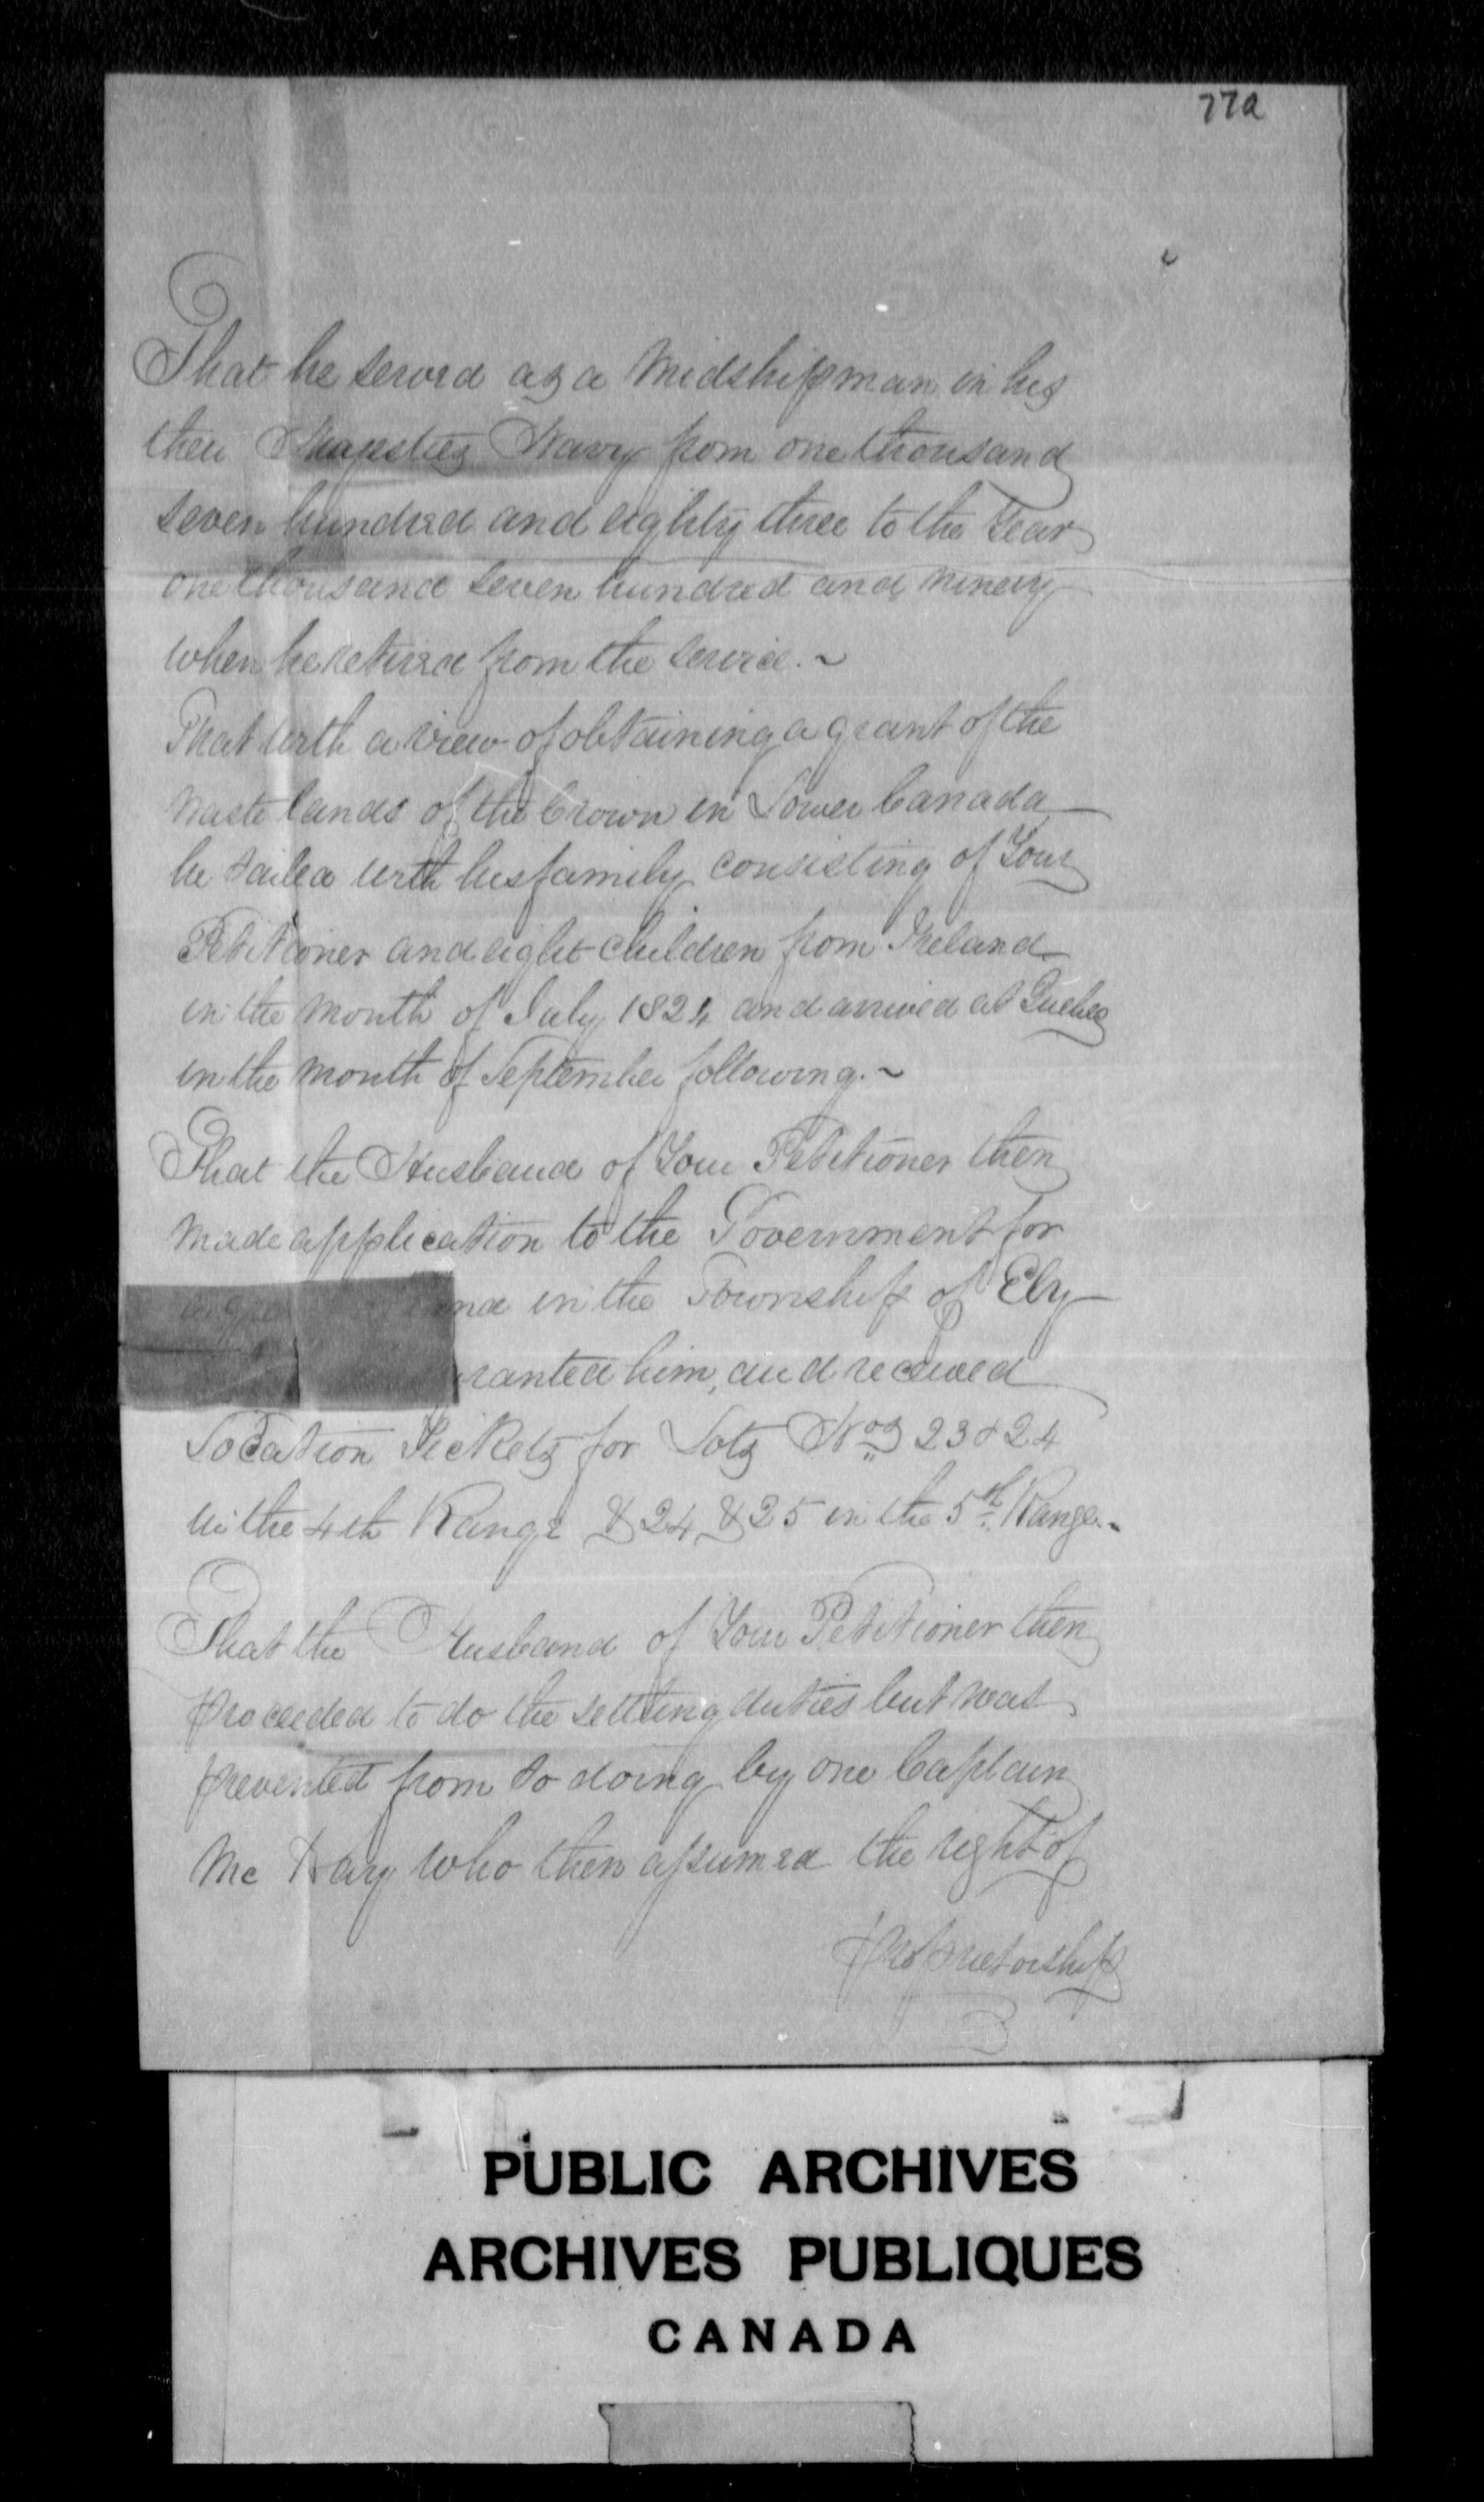 77a
That he served as a Midshipman in his
then Majesties Navy from one thousand
seven hundred and eighty three to the Year
one thousand seven hundred and ninety
when he retired from the service. ~
That with a view of obtaining a grant of the
waste lands of the Crown in Lower Canada
he sailed with his family consisting of Your
Petitioner and eight children from Ireland
in the month of July 1824 and arrived at Quebec
in the month of September following. ~
That the Husband of Your Petitioner then
made application to the Government for
in the Township of Ely
ranted him, and received
Location Tickets for Lots Nos 23 & 24
in the 4th Range & 24 & 25 in the 5th Range. ~
That the Husband of Your Petitioner then
proceeded to do the settling duties but was
prevented from so doing by one Captain
Mc who then assumed the right of
proprietorship
PUBLIC ARCHIVES
ARCHIVES PUBLIQUES
CANADA